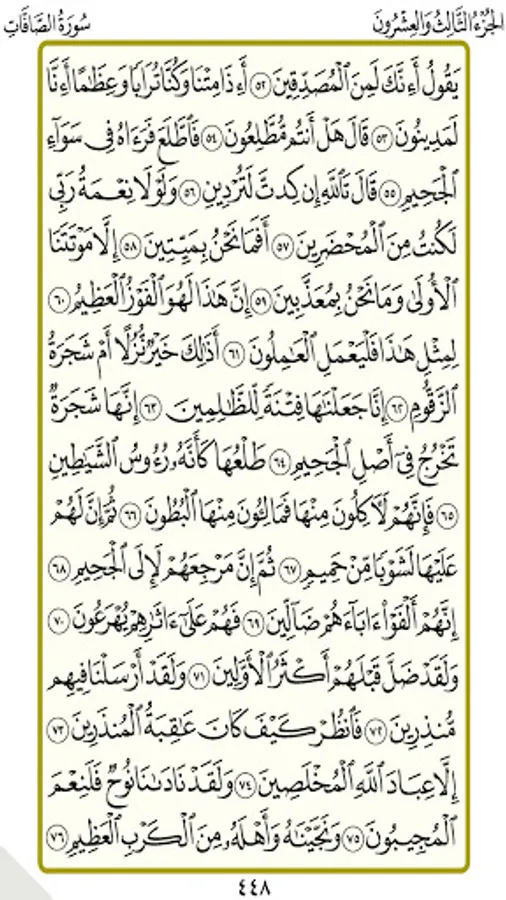 الجزء الثالث والعشرون
سورة الصافات
يَقُولُ أَءِنَّكَ لَمِنَ الْمُصَدِّقِينَ ٥٢ أَءِذَا مِتْنَا وَكُنَّا تُرَابًا وَعِظَٰمًا أَءِنَّا
لَمَدِينُونَ ٥٣ قَالَ هَلْ أَنتُم مُّطَّلِعُونَ ٥٤ فَاطَّلَعَ فَرَءَاهُ فِى سَوَآءِ
الْجَحِيمِ ٥٥ قَالَ تَاللَّهِ إِن كِدتَّ لَتُرْدِينِ ٥٦ وَلَوْلَا نِعْمَةُ رَبِّى
لَكُنتُ مِنَ الْمُحْضَرِينَ ٥٧ أَفَمَا نَحْنُ بِمَيِّتِينَ ٥٨ إِلَّا مَوْتَتَنَا
الْأُولَىٰ وَمَا نَحْنُ بِمُعَذَّبِينَ ٥٩ إِنَّ هَٰذَا لَهُوَ الْفَوْزُ الْعَظِيمُ ٦٠
لِمِثْلِ هَٰذَا فَلْيَعْمَلِ الْعَٰمِلُونَ ٦١ أَذَٰلِكَ خَيْرٌ نُّزُلًا أَمْ شَجَرَةُ
الزَّقُّومِ ٦٢ إِنَّا جَعَلْنَٰهَا فِتْنَةً لِّلظَّٰلِمِينَ ٦٣ إِنَّهَا شَجَرَةٌ
تَخْرُجُ فِىٓ أَصْلِ الْجَحِيمِ ٦٤ طَلْعُهَا كَأَنَّهُۥ رُءُوسُ الشَّيَٰطِينِ
٦٥ فَإِنَّهُمْ لَءَاكِلُونَ مِنْهَا فَمَالِـُٔونَ مِنْهَا الْبُطُونَ ٦٦ ثُمَّ إِنَّ لَهُمْ
عَلَيْهَا لَشَوْبًا مِّنْ حَمِيمٍ ٦٧ ثُمَّ إِنَّ مَرْجِعَهُمْ لَإِلَى الْجَحِيمِ ٦٨
إِنَّهُمْ أَلْفَوْا۟ ءَابَآءَهُمْ ضَآلِّينَ ٦٩ فَهُمْ عَلَىٰٓ ءَاثَٰرِهِمْ يُهْرَعُونَ ٧٠
وَلَقَدْ ضَلَّ قَبْلَهُمْ أَكْثَرُ الْأَوَّلِينَ ٧١ وَلَقَدْ أَرْسَلْنَا فِيهِم
مُّنذِرِينَ ٧٢ فَانظُرْ كَيْفَ كَانَ عَٰقِبَةُ الْمُنذَرِينَ ٧٣
إِلَّا عِبَادَ اللَّهِ الْمُخْلَصِينَ ٧٤ وَلَقَدْ نَادَىٰنَا نُوحٌ فَلَنِعْمَ
الْمُجِيبُونَ ٧٥ وَنَجَّيْنَٰهُ وَأَهْلَهُۥ مِنَ الْكَرْبِ الْعَظِيمِ ٧٦
٤٤٨